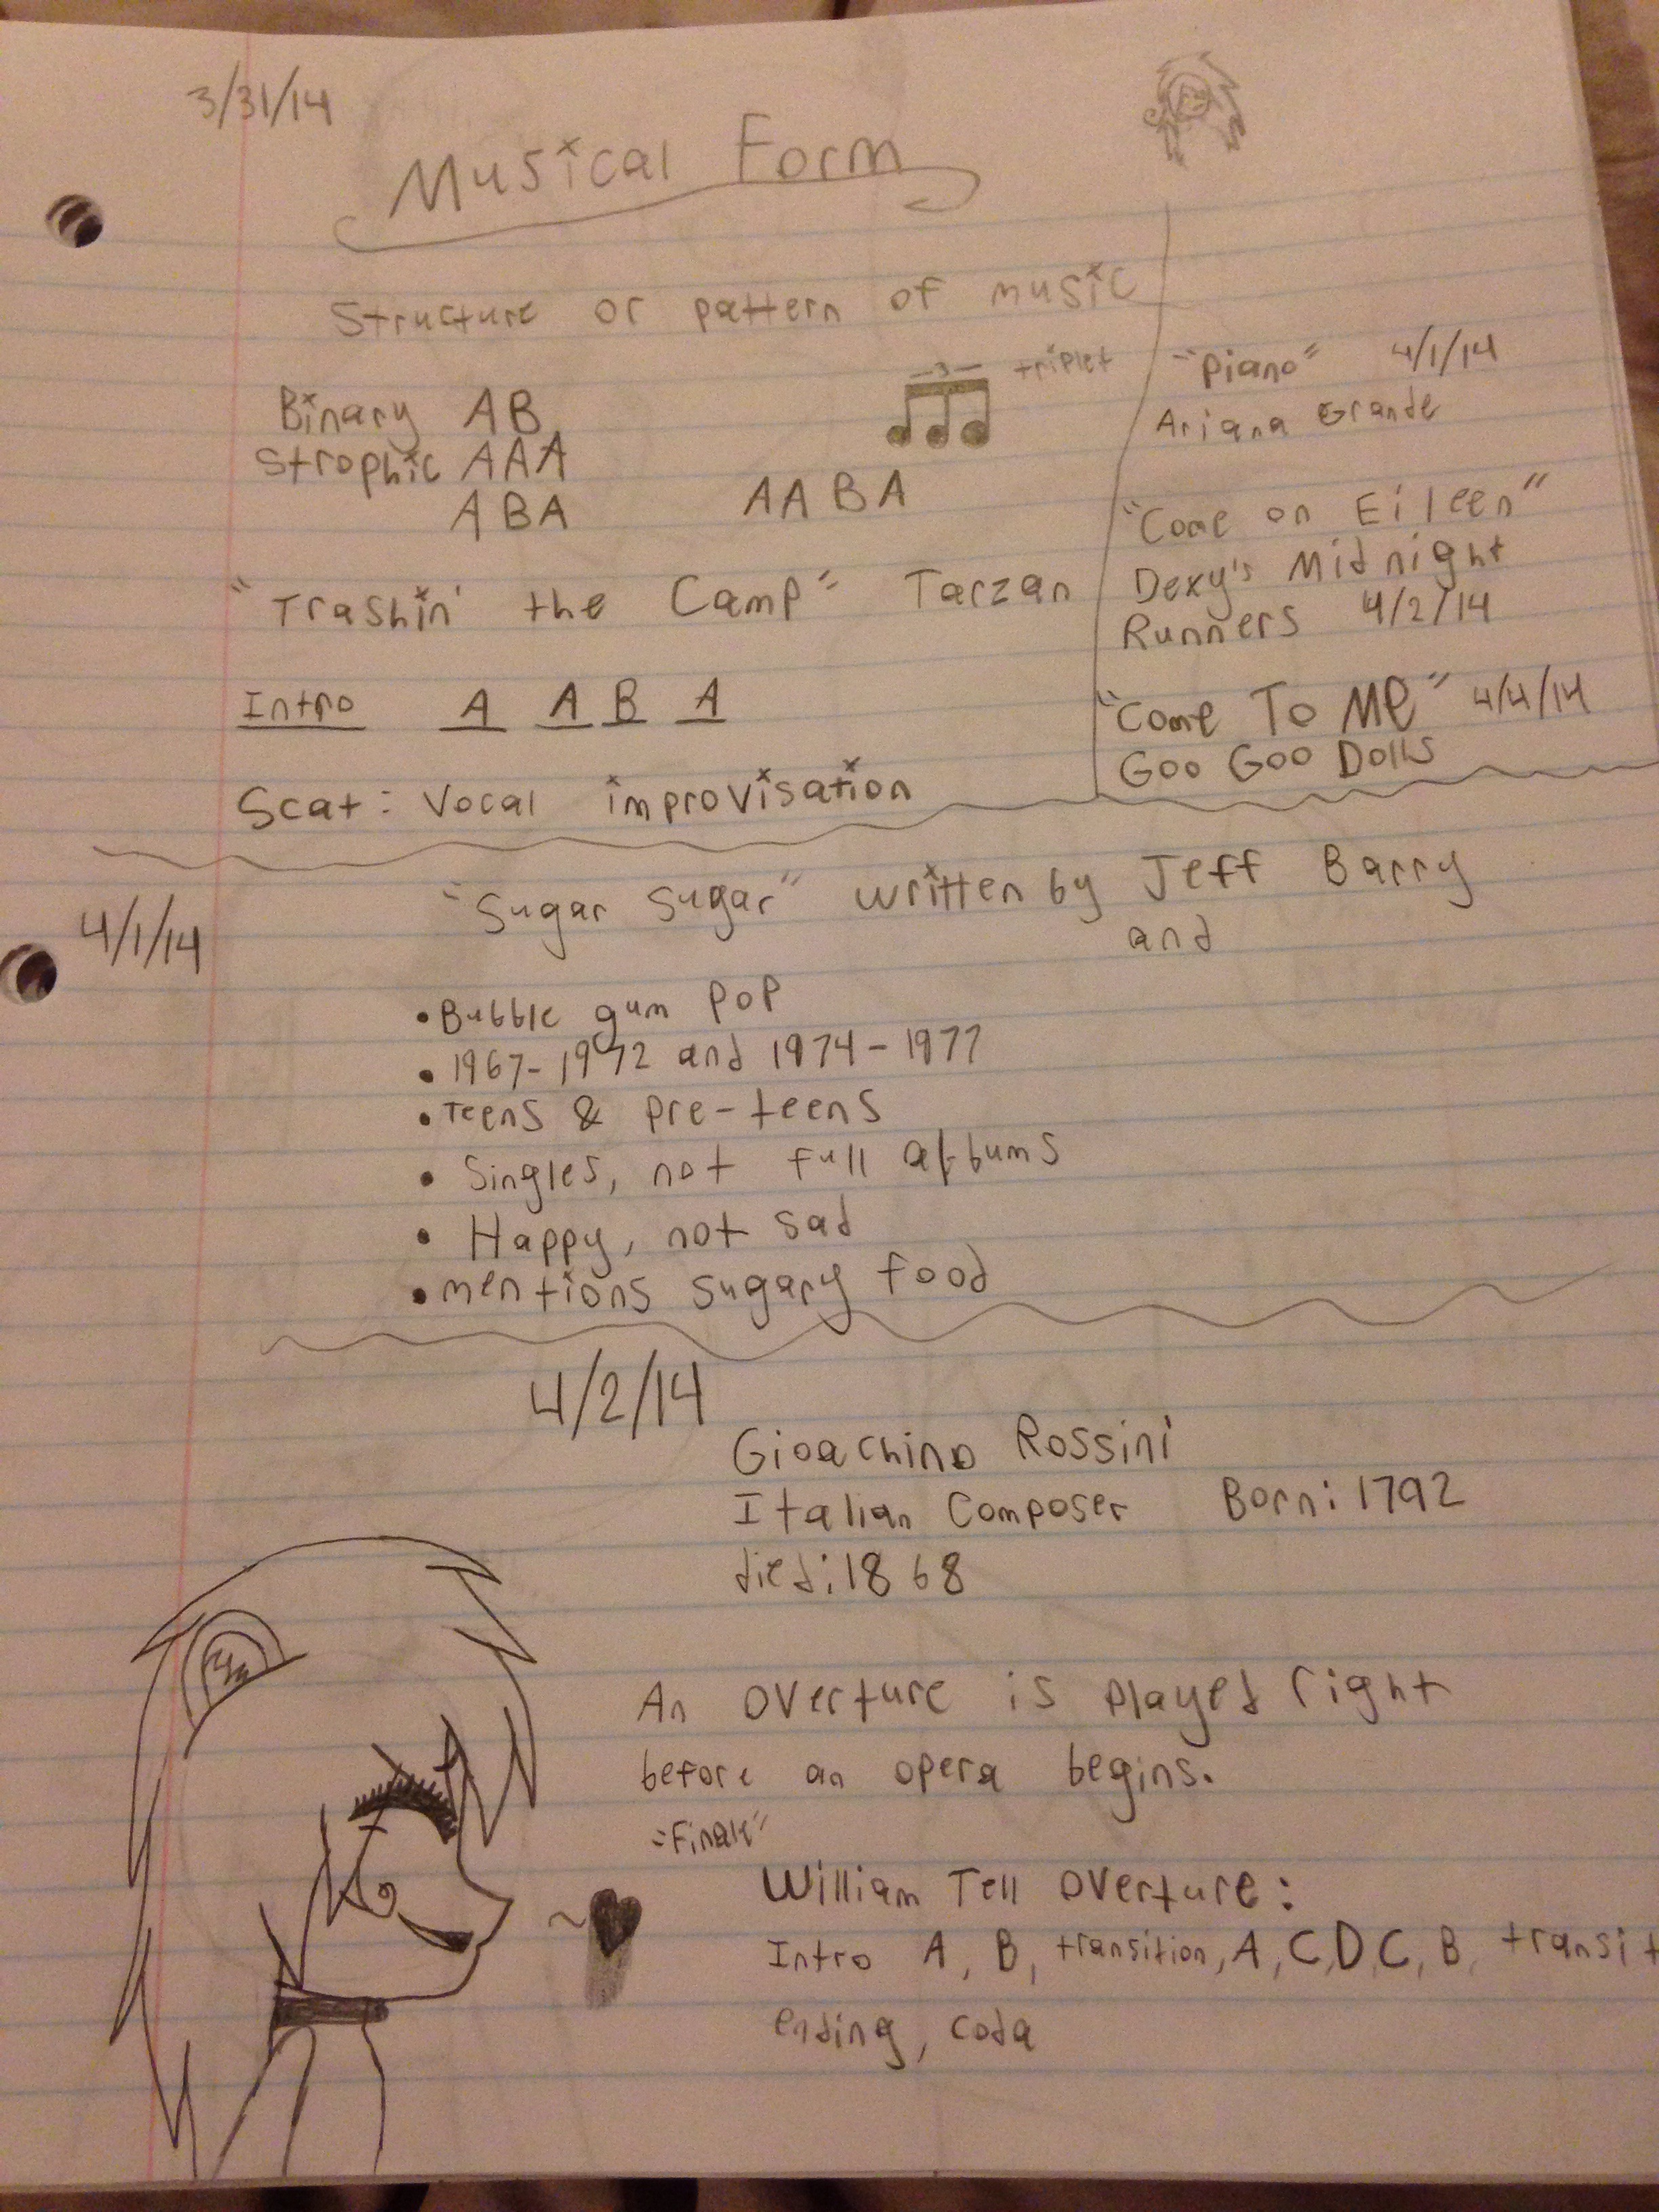 3/31/14
Musical Form
Structure or pattern of music
3
triplet
Binary AB
Strophic AAA
ABA
AABA
"Trashin' the Camp" Tarzan
Intro A A B A
Scat: Vocal improvisation
"Piano" 4/1/14
Ariana Grande
"Come on Eileen"
Dexy's Midnight
Runners 4/2/14
"Come To Me" 4/4/14
Goo Goo Dolls
4/1/14
"Sugar Sugar" written by Jeff Barry
and
• Bubble gum pop
• 1967-1972 and 1974-1977
• Teens & pre-teens
• Singles, not full albums
• Happy, not sad
• mentions sugary food
4/2/14
Gioachino Rossini
Italian Composer Born: 1792
died: 1868
An overture is played right
before an opera begins.
"Finale"
William Tell Overture:
Intro A, B, transition, A, C, D, C, B, transit
ending, coda